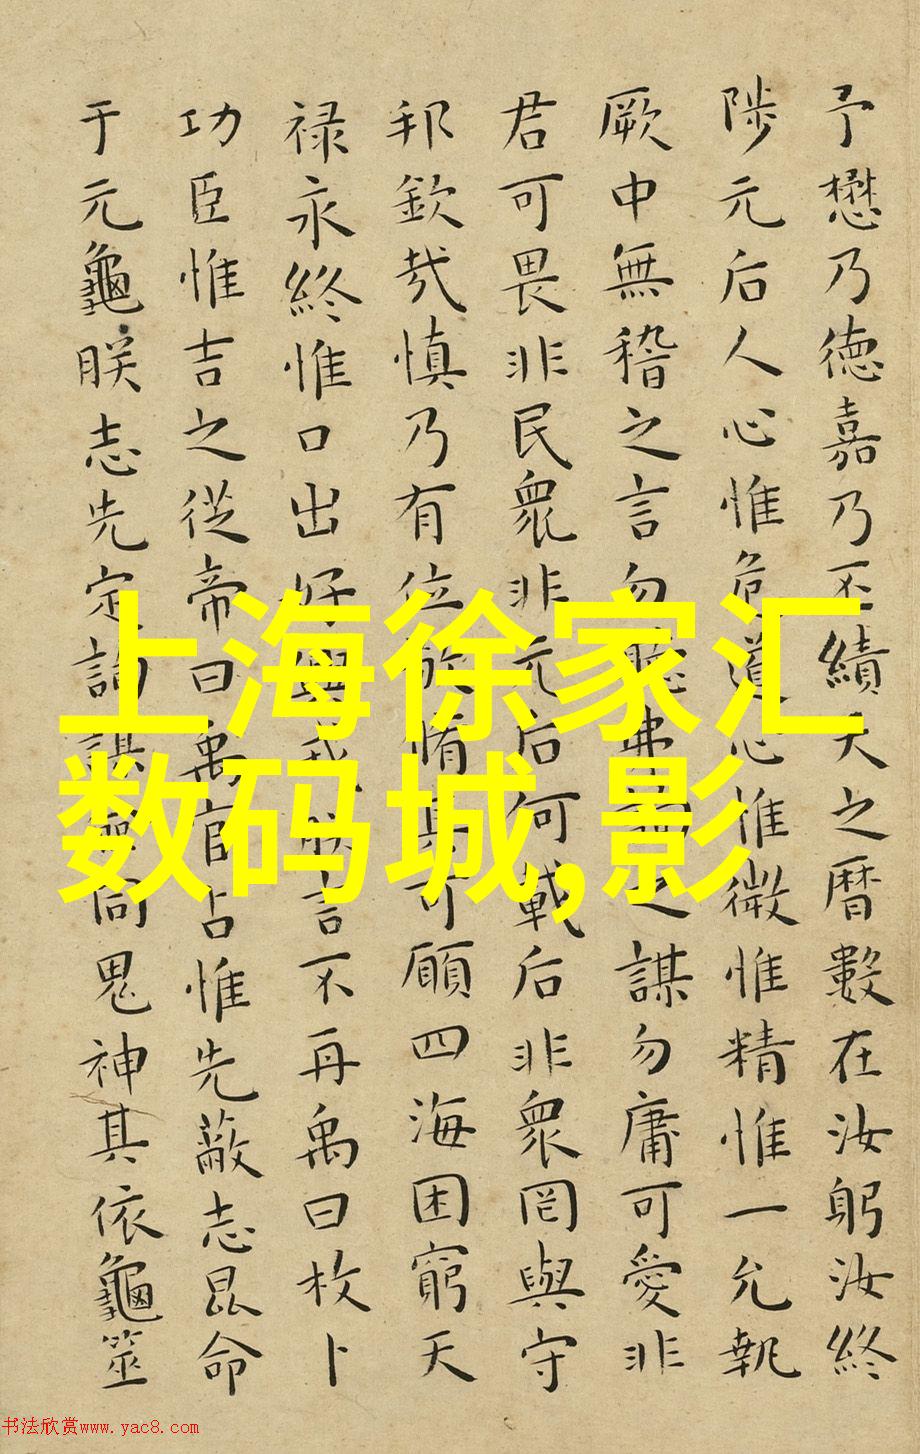 予懋乃德嘉乃丕績天之曆數在汝躬汝終
陟元后人心惟危道心惟微惟精惟一允執
厥中無稽之言勿聽弗之謀勿庸可愛非
君可畏非民衆非元后何載后非衆罔與守
邦欽哉慎乃有位其可願四海困窮天
禄永終惟口出好興戎朕言不再禹曰枚卜
功臣惟吉之從帝曰禹官占惟先蔽志昆命
于元龜朕志先定詢謀同鬼神其依龜筮
上海徐家汇
数码城,影
书法欣赏www.yac8.com